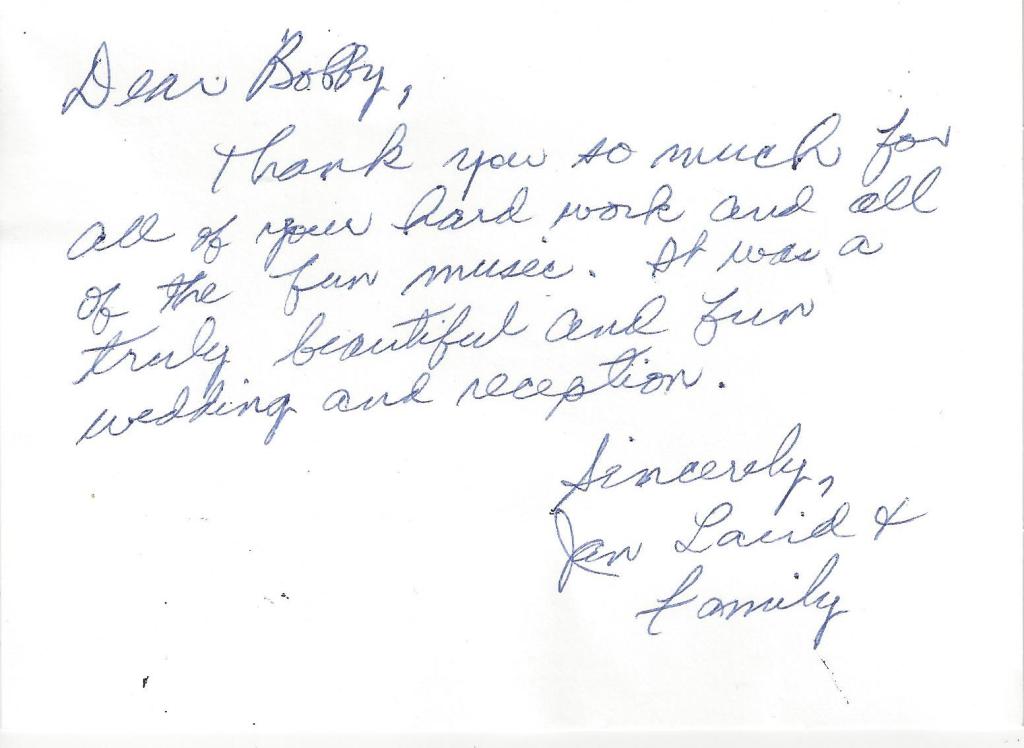 Dear Bobby,
Thank you so much for
all of your hard work and all
of the fun music. It was a
truly beautiful and fun
wedding and reception.
Sincerely,
Jan Laird &
family